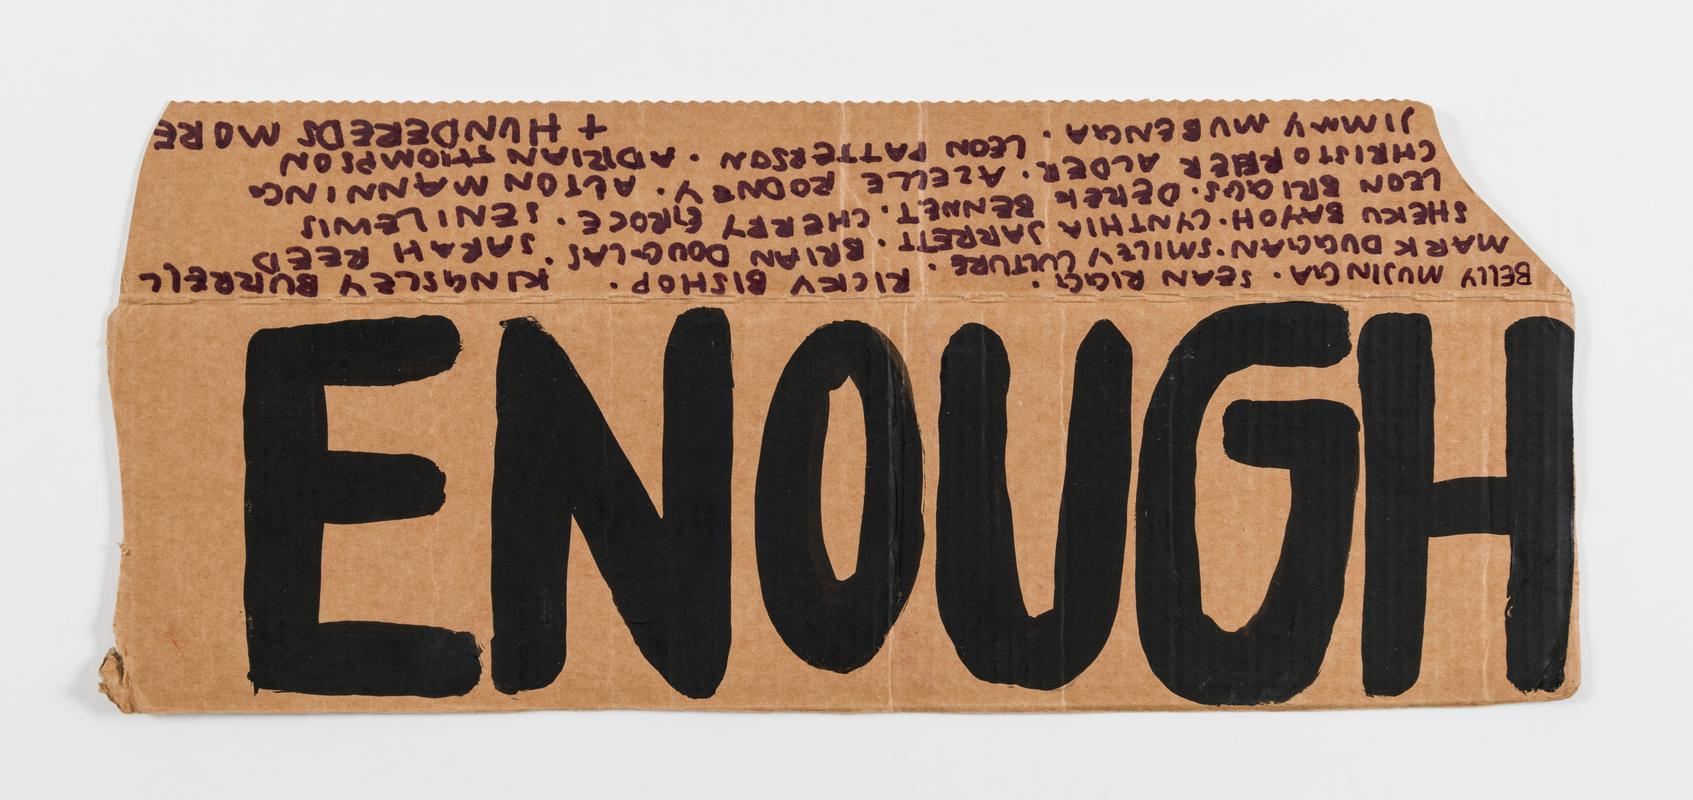 ENOUGH
BELLY MUJINGA. SEAN RIGG.
MARK DUGGAN. SMILEY CULTURE. RICKY BISHOP. KINGSLEY BURRELL
SHEKU BAYOH. CYNTHIA JARRETT. BRIAN DOUGLAS. SARAH REED
LEON BRIGGS. DEREK BENNET. CHERRY GROCE. SENI LEWIS
CHRISTOPHER ALDER. AZELLE RODNEY. ALTON MANNING
JIMMY MUBENGA. LEON PATTERSON. ADRIAN THOMPSON
+ HUNDEREDS MORE